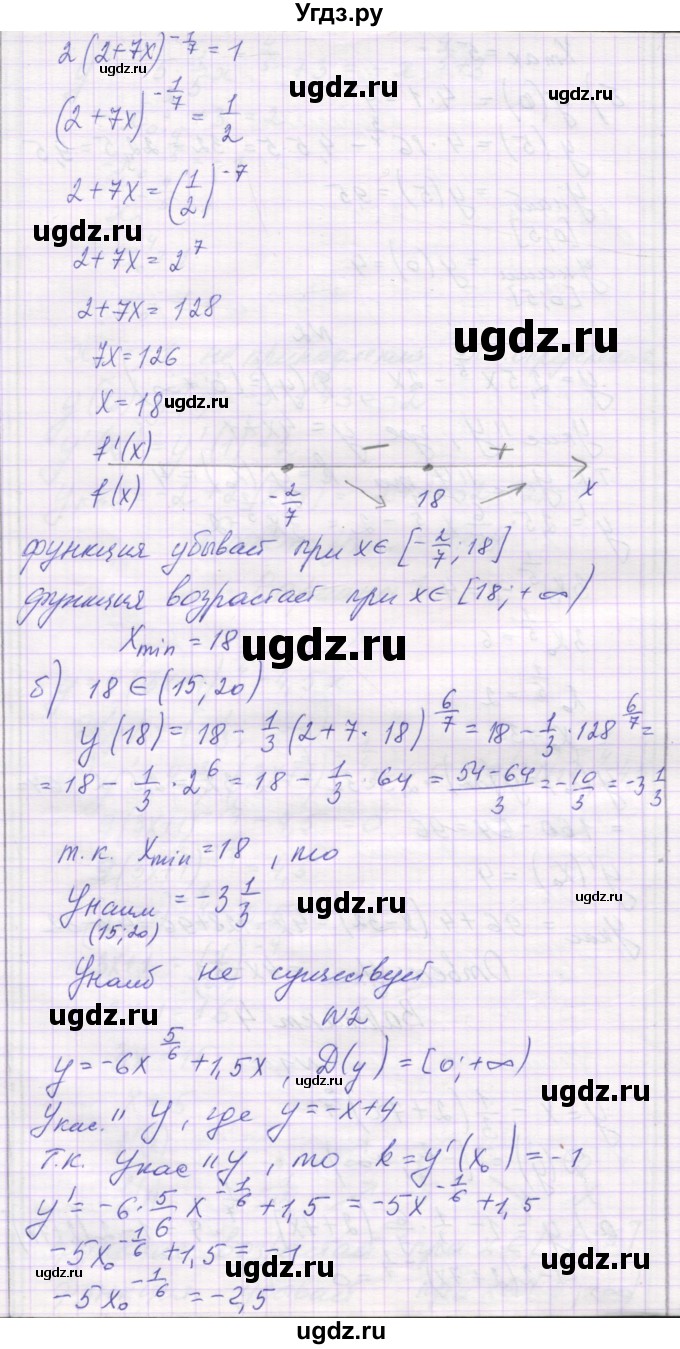 Угдз.ру
2(2+7x)^{-1/7} = 1
ugdz.ru ugdz.ru
(2+7x)^{-1/7} = 1/2
ugdz.ru
2+7x = (1/2)^{-7}
ugdz.ru
2+7x = 2^7
2+7x = 128
ugdz.ru
7x = 126
x = 18 ugdz.ru
f'(x) − +
f(x) -2/7 18 x
функция убывает при x∈[-2/7; 18]
функция возрастает при x∈[18; +∞)
x_min = 18 ugdz.ru
б) 18∈(15; 20)
y(18) = 18 - 1/3(2+7·18)^{6/7} = 18 - 1/3·128^{6/7} =
= 18 - 1/3·2^6 = 18 - 1/3·64 = (54-64)/3 = -10/3 = -3 1/3
ugdz.ru
т.к. x_min = 18, то
ugdz.ru
y_наим (15; 20) = -3 1/3
ugdz.ru
y_наиб не существует
ugdz.ru
№2
y = -6x^{5/6} + 1,5x, D(y) = [0; +∞)
ugdz.ru
y_кас. ıı y, где y = -x+4
т.к. y_кас ıı y, то k = y'(x₀) = -1
y' = -6·5/6 x^{-1/6} + 1,5 = -5x^{-1/6} + 1,5
ugdz.ru
-5x₀^{-1/6} + 1,5 = -1
ugdz.ru ugdz.ru
-5x₀^{-1/6} = -2,5
ugdz.ru